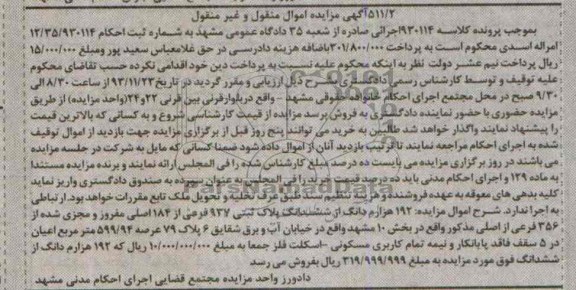 ۵۱۱/۲آگهی مزایده اموال منقول و غیر منقول
بموجب پرونده کلاسه ۹۳۰۱۱۴اجرائی صادره از شعبه ۳۵ دادگاه عمومی مشهد به شماره ثبت احکام ۱۲/۳۵/۹۳۰۱۱۴
امراله اسدی محکوم است به پرداخت ۳۰۱/۸۰۰/۰۰۰باضافه هزینه دادرسی در حق غلامعباس سعید پور ومبلغ ۱۵/۰۰۰/۰۰۰
ریال پرداخت نیم عشر دولت نظر به اینکه محکوم علیه نسبت به پرداخت دین خود اقدامی نکرده حسب تقاضای محکوم
علیه توقیف و توسط کارشناس رسمی دادگستری بشرح ذیل ارزیابی و مقرر گردید در تاریخ ۹۳/۱۱/۲۳ از ساعت ۸/۳۰ الی
۹/۳۰ صبح در محل مجتمع اجرای احکام خانواده حقوقی مشهد - واقع دربلوارقرنی بین قرنی ۲۲و۲۴(واحد مزایده) از طریق
مزایده حضوری با حضور نماینده دادگستری به فروش برسد مزایده از قیمت کارشناسی شروع و به کسانی که بالاترین قیمت
را پیشنهاد نمایند واگذار خواهد شد طالبین به خرید می توانند پنج روز قبل از برگزاری مزایده جهت بازدید از اموال توقیف
شده به اجرای احکام مراجعه نمایند تا ترتیب بازدید آنان از اموال داده شود ضمنا کسانی که مایل به شرکت در جلسه مزایده
می باشند در روز برگزاری مزایده می بایست ده درصد مبلغ کارشناس شده را فی المجلس ارائه نمایند و برنده مزایده مستندا
به ماده ۱۲۹ و اجرای احکام مدنی باید ده درصد قیمت خرید را فی المجلس به عنوان سپرده به صندوق دادگستری واریز نماید
کلیه بدهی های معوقه به عهده فروشنده و هزینه تنظیم سند طبق عرف تخلیه و تحویل ملک تابع مقررات خواهد بود. ارتباطی
به اجرا ندارد. شرح اموال مزایده: ۱۹۲ هزارم دانگ از ششدانگ پلاک ثبتی ۹۳۷ فرعی از ۱۸۲ اصلی مفروز و مجزی شده از
۳۵۶ فرعی از اصلی مذکور واقع در بخش ۱۰ مشهد واقع در خیابان آب و برق شقایق ۶ پلاک ۷۹ عرصه ۵۹۹/۹۴ متر مربع اعیان
در ۵ سقف فاقد پایانکار و نیمه تمام کاربری مسکونی -اسکلت فلز جمعا به مبلغ ۱۰/۰۰۰/۰۰۰/۰۰۰ ریال که ۱۹۲ هزارم دانگ از
ششدانگ فوق مورد مزایده به مبلغ ۳۱۹/۹۹۹/۹۹۹ ریال بفروش می رسد
دادورز واحد مزایده مجتمع قضایی اجرای احکام مدنی مشهد